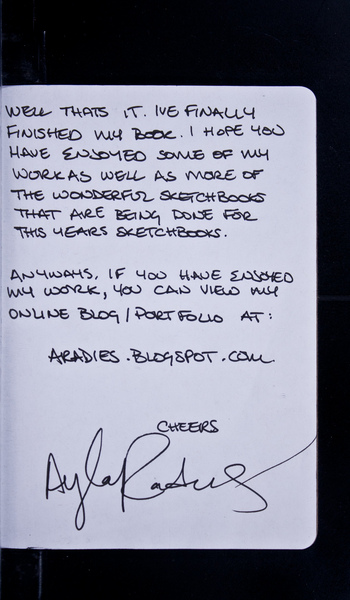 WELL THATS IT. IVE FINALLY
FINISHED MY BOOK. I HOPE YOU
HAVE ENJOYED SOME OF MY
WORK AS WELL AS MORE OF
THE WONDERFUL SKETCHBOOKS
THAT ARE BEING DONE FOR
THIS YEARS SKETCHBOOKS.
ANYWAYS, IF YOU HAVE ENJOYED
MY WORK, YOU CAN VIEW MY
ONLINE BLOG/PORTFOLIO AT:
ARADIES.BLOGSPOT.COM
CHEERS
Ayla